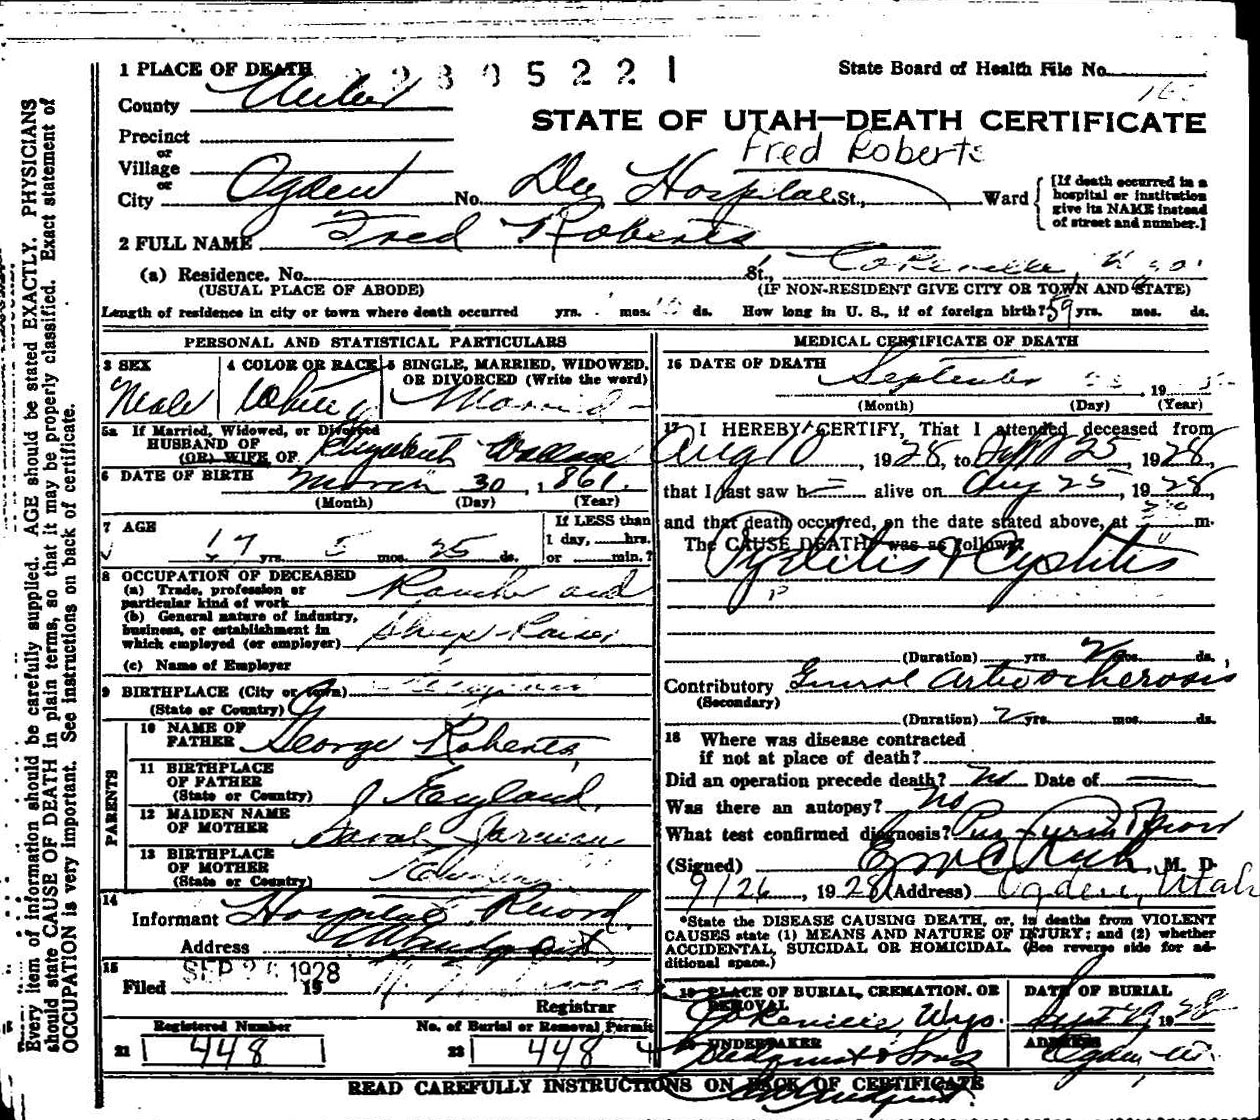 1 PLACE OF DEATH
State Board of Health File No.
County Weber
STATE OF UTAH—DEATH CERTIFICATE
Precinct
or
Fred Roberts
Village
or
City Ogden No. Dee Hospital St., Ward
[If death occurred in a
hospital or institution
give its NAME instead
of street and number.]
2 FULL NAME Fred Roberts
(a) Residence. No. St., Cokeville, Wyo.
(USUAL PLACE OF ABODE) (IF NON-RESIDENT GIVE CITY OR TOWN AND STATE)
Length of residence in city or town where death occurred yrs. mos. ds. How long in U. S., if of foreign birth? 59 yrs. mos. ds.
PERSONAL AND STATISTICAL PARTICULARS
3 SEX
Male
4 COLOR OR RACE
White
5 SINGLE, MARRIED, WIDOWED,
OR DIVORCED (Write the word)
Married
5a If Married, Widowed, or Divorced
HUSBAND OF
(OR) WIFE OF Elizabeth Wallace
6 DATE OF BIRTH March 30, 1861.
(Month) (Day) (Year)
7 AGE
yrs. 5 mos. 25 ds.
If LESS than
1 day, hrs.
or min.?
8 OCCUPATION OF DECEASED
(a) Trade, profession or
particular kind of work Rancher and
(b) General nature of industry,
business, or establishment in
which employed (or employer) Sheep Raiser
(c) Name of Employer
9 BIRTHPLACE (City or town)
(State or Country)
PARENTS
10 NAME OF
FATHER George Roberts,
11 BIRTHPLACE
OF FATHER
(State or Country) England,
12 MAIDEN NAME
OF MOTHER Sarah Jarman
13 BIRTHPLACE
OF MOTHER
(State or Country)
14
Informant Hospital Record
Address
15
Filed SEP 26 1928 19
Registrar
Registered Number
21 448
No. of Burial or Removal Permit
22 448
MEDICAL CERTIFICATE OF DEATH
16 DATE OF DEATH
September 19
(Month) (Day) (Year)
17 I HEREBY CERTIFY, That I attended deceased from
Aug 10, 1928, to Sept 25, 1928,
that I last saw h alive on Aug 25, 1928,
and that death occurred, on the date stated above, at m.
The CAUSE DEATH was as follows:
Pyelitis & Cystitis
(Duration) yrs. 2 mos. ds.,
Contributory General Arteriosclerosis
(Secondary)
(Duration) 2 yrs. mos. ds.
18 Where was disease contracted
if not at place of death?
Did an operation precede death? No Date of
Was there an autopsy? No
What test confirmed diagnosis?
(Signed) Rich, M. D.
9/26, 1928 (Address) Ogden, Utah
*State the DISEASE CAUSING DEATH, or, in deaths from VIOLENT
CAUSES state (1) MEANS AND NATURE OF INJURY; and (2) whether
ACCIDENTAL, SUICIDAL OR HOMICIDAL. (See reverse side for ad-
ditional space.)
19 PLACE OF BURIAL, CREMATION, OR
REMOVAL
Cokeville, Wyo.
DATE OF BURIAL
Sept 1928
20 UNDERTAKER
Lindquist & Sons
ADDRESS
Ogden, Ut.
READ CAREFULLY INSTRUCTIONS ON BACK OF CERTIFICATE
Every item of information should be carefully supplied. AGE should be stated EXACTLY. PHYSICIANS
should state CAUSE OF DEATH in plain terms, so that it may be properly classified. Exact statement of
OCCUPATION is very important. See instructions on back of certificate.